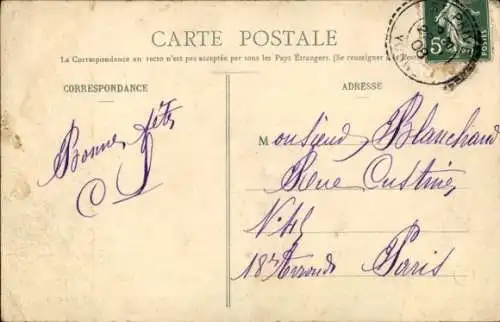 CARTE POSTALE
La Correspondance au recto n'est pas acceptée par tous les Pays Étrangers. (Se renseigner
CORRESPONDANCE
ADRESSE
Bonne fête
Monsieur Blanchaud
Rue Custine
18e Arrond Paris
5c
POSTES